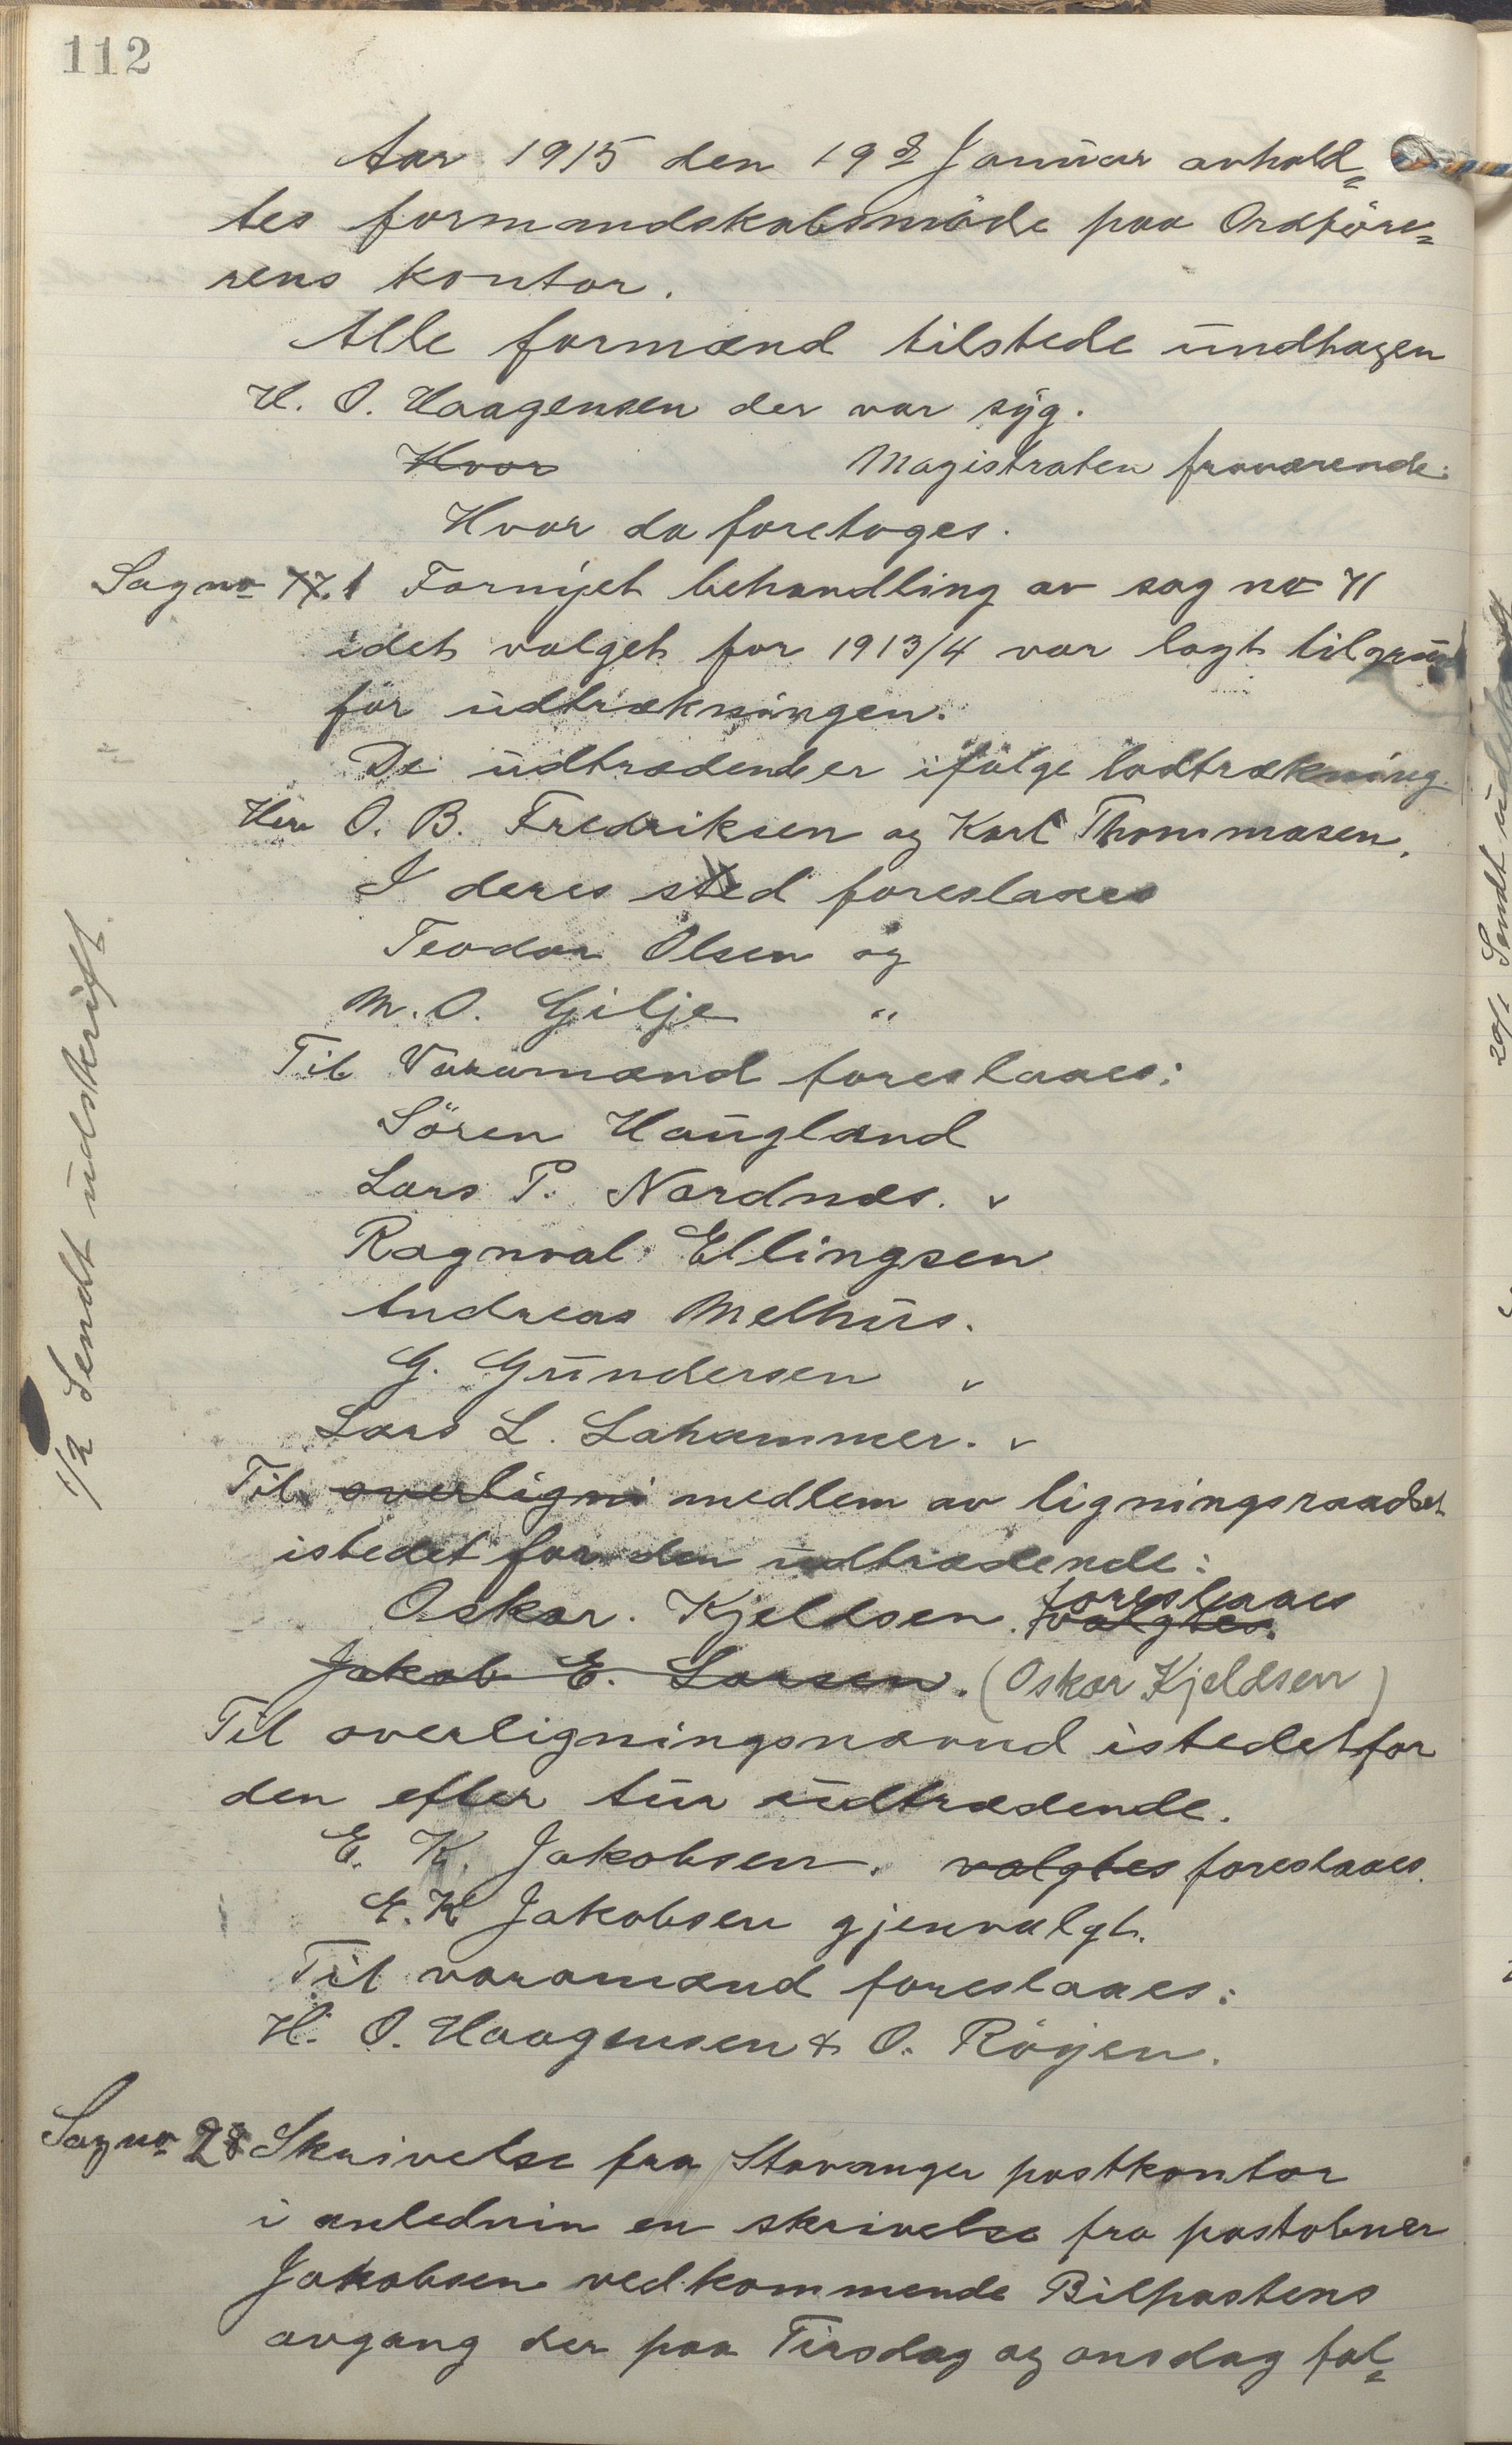 112
Aar 1915 den 19de Januar avhold=
tes formandskabsmöde paa Ordföre=
rens kontor.
Alle formænd tilstede undtagen
H. O. Haagensen der var syg.
Hvor Magistraten fraværende.
Hvor da foretoges.
Sag no 1 Fornyet behandling av sag no 71
idet valget for 1913/4 var lagt tilgrund
for udtrækningen.
De udtrædender ifölge lodtrækning
Herr O. B. Fredriksen og Karl Thommasen.
I deres sted foreslaaes
Teodor Olsen og
M. O. Gilje "
Til Varamænd foreslaaes:
Sören Haugland
Lars P. Nordnæs. v
Ragnval Ellingsen
Andreas Melhus.
G. Gundersen v
Lars L. Lahammer. v
Til overligni medlem av ligningsraadet
istedet for den udtrædende:
foreslaaes
Oskar Kjeldsen. valgtes.
Jakob E. Larsen. (Oskar Kjeldsen)
Til overligningsnævnd istedetfor
den efter tur udtrædende.
E. K. Jakobsen. valgtes foreslaaes.
E. K Jakobsen gjenvalgt.
Til varamænd foreslaaes:
H. O. Haagensen & O. Röyen.
Sag no 2 Skrivelse fra Stavanger postkontor
i anlednin en skrivelse fra postobner
Jakobsen vedkommende Bilpostens
avgang der paa Tirsdag og onsdag fal=
1/2 Sendt udskrift
20/1 Sendt